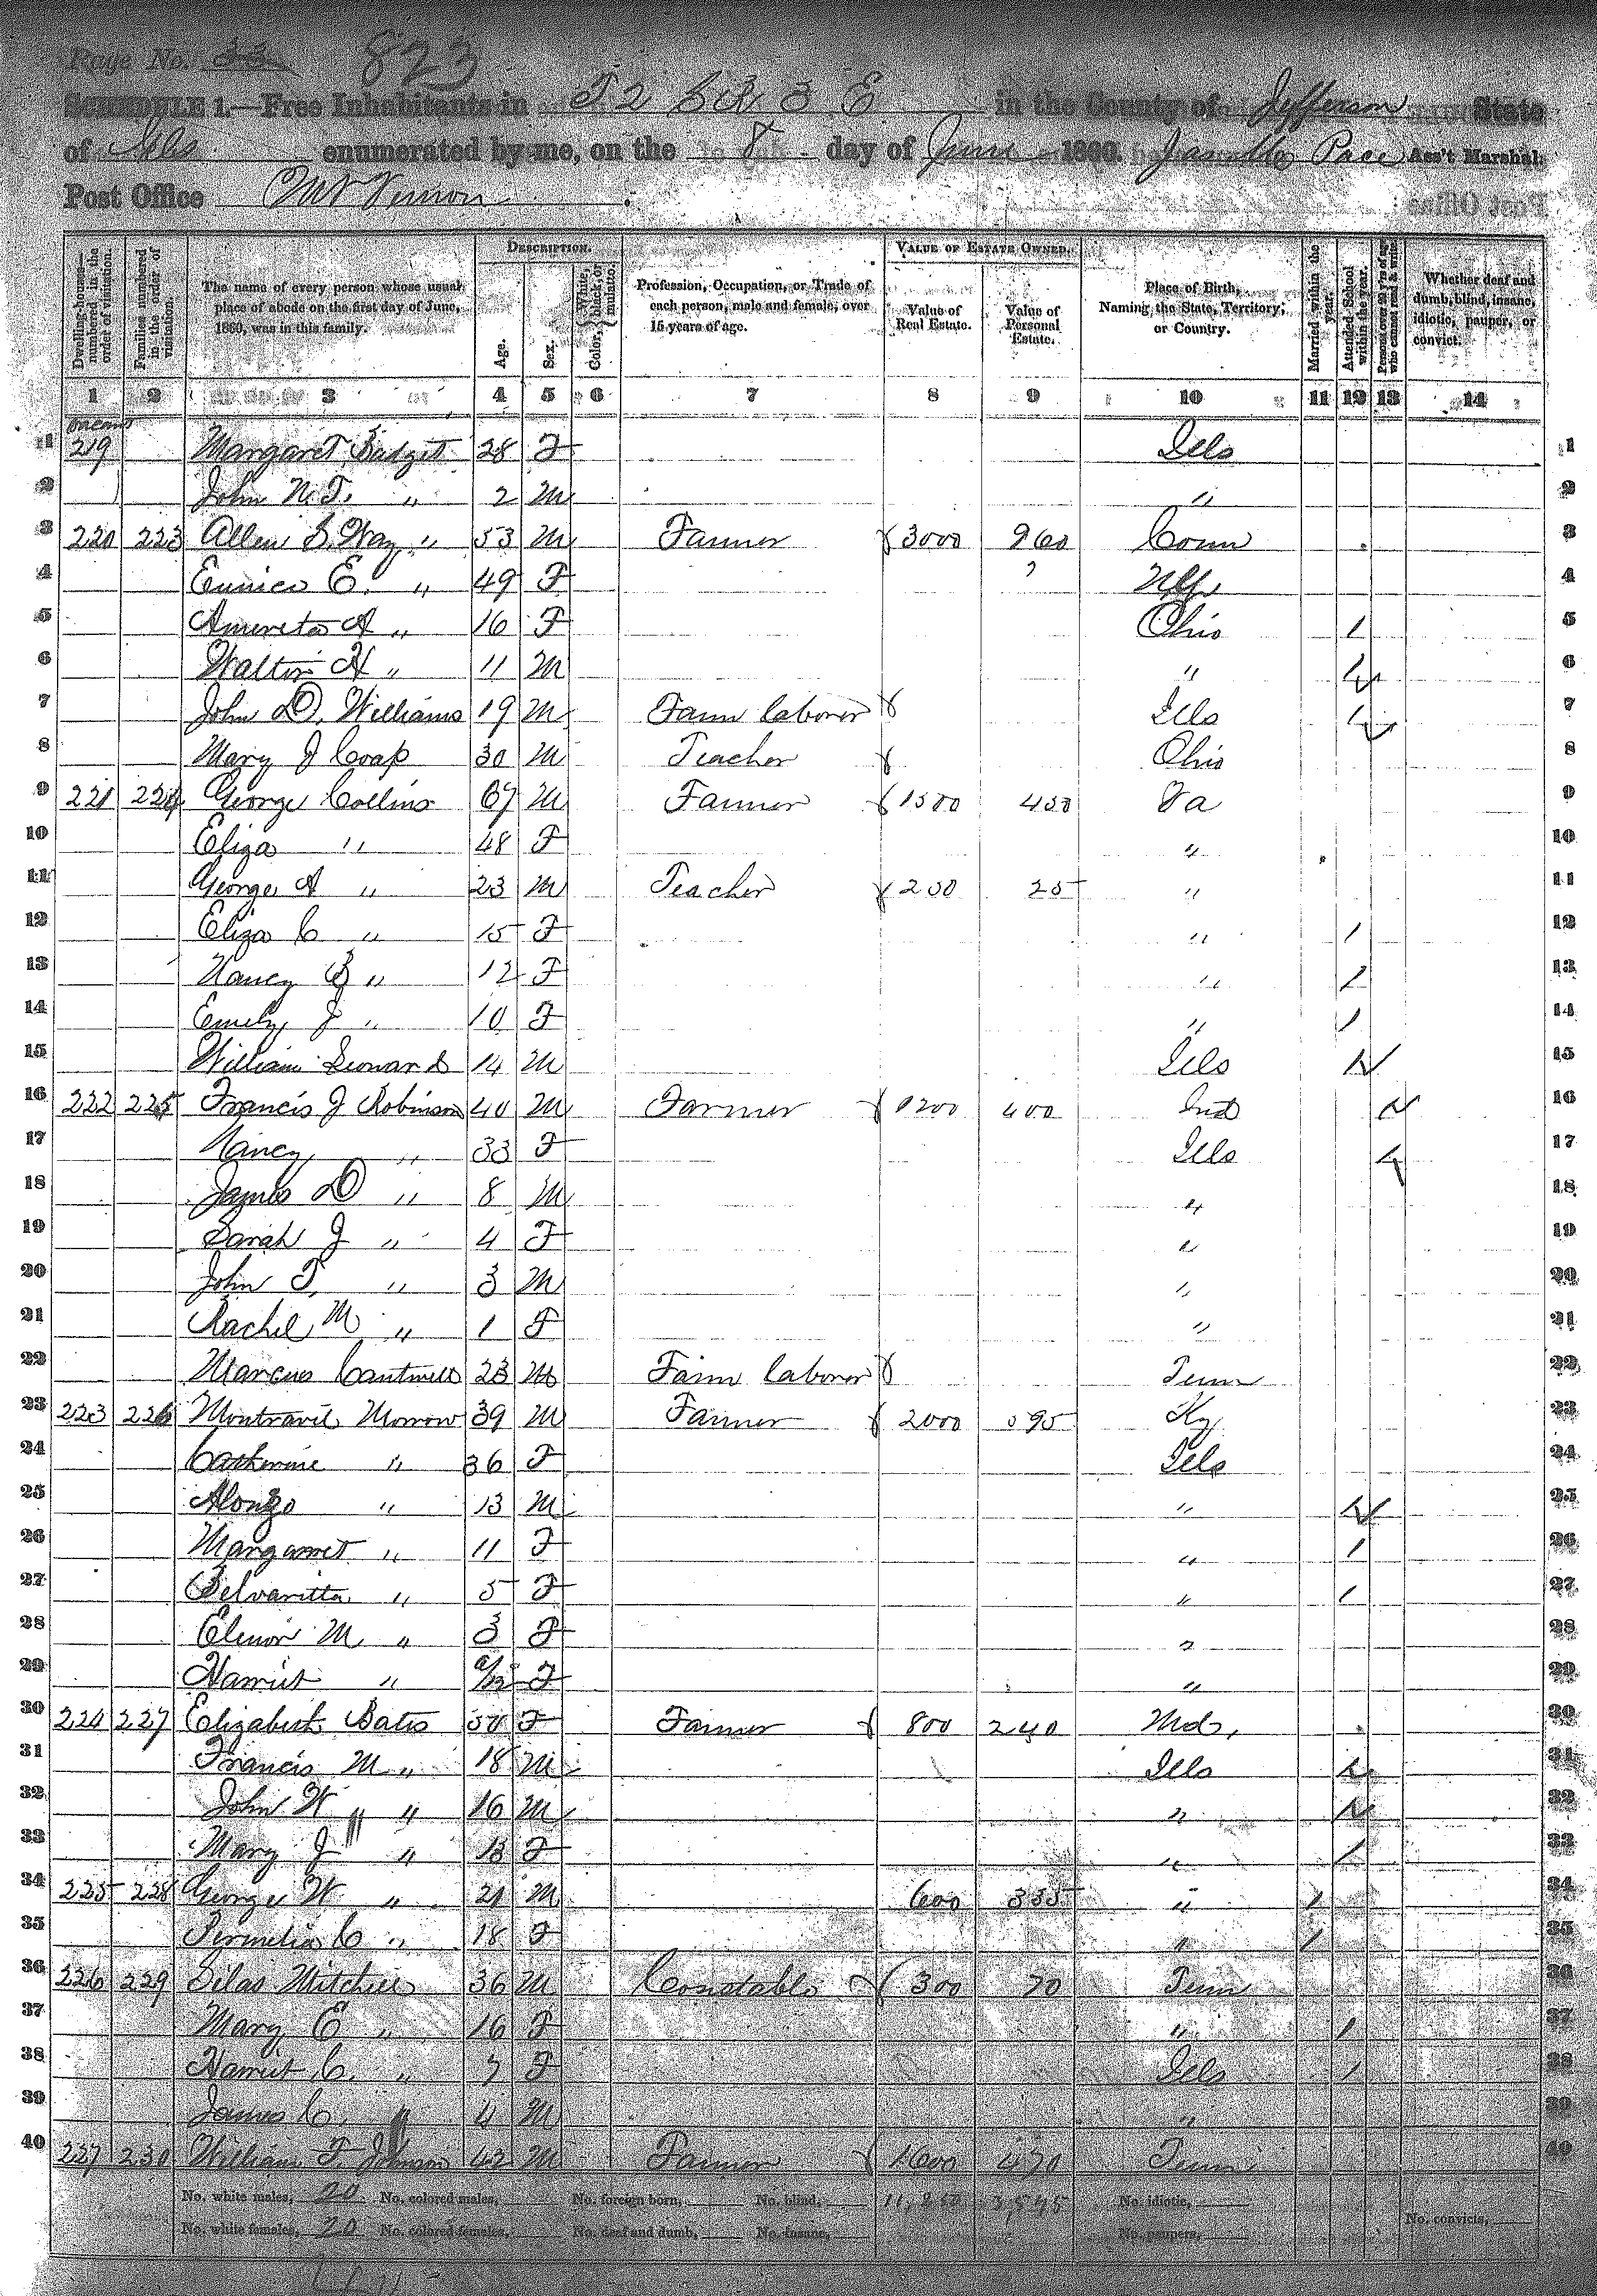 Page No. 33 823
SCHEDULE 1.—Free Inhabitants in T 2 S R 3 E in the County of Jefferson State
of Ills enumerated by me, on the 8 day of June 1860. Pace Ass't Marshal.
Post Office Mt Vernon
Dwelling-houses—numbered in the order of visitation.
Families numbered in the order of visitation.
The name of every person whose usual place of abode on the first day of June, 1860, was in this family.
DESCRIPTION.
Age.
Sex.
Color, {White, black, or mulatto.
Profession, Occupation, or Trade of each person, male and female, over 15 years of age.
VALUE OF ESTATE OWNED.
Value of Real Estate.
Value of Personal Estate.
Place of Birth, Naming the State, Territory, or Country.
Married within the year.
Attended School within the year.
Persons over 20 y'rs of age who cannot read & write.
Whether deaf and dumb, blind, insane, idiotic, pauper, or convict.
1 2 3 4 5 6 7 8 9 10 11 12 13 14
1 219 Margaret 28 F Ills 1
2 John N. T. " 2 M " 2
3 220 223 Allen S. Way " 53 M Farmer 3000 960 Conn 3
4 Eunice E. " 49 F 4
5 A " 16 F Ohio 1 5
6 Walton H " 11 M " 1 6
7 John D. Williams 19 M Farm laborer Ills 1 7
8 Mary J 30 M Teacher Ohio 8
9 221 224 George Collins 67 M Farmer 1500 450 Va 9
10 Eliza " 48 F " 10
11 George A " 23 M Teacher 250 25 " 11
12 Eliza C " 15 F " 1 12
13 Nancy B " 12 F " 1 13
14 Emily J " 10 F " 1 14
15 William Leonard 14 M Ills 1 15
16 222 225 Francis J Robinson 40 M Farmer 1200 400 Ind 1 16
17 Nancy " 33 F Ills 1 17
18 James D " 8 M " 18
19 Sarah J " 4 F " 19
20 John T. " 3 M " 20
21 Rachel M " 1 F " 21
22 Marcus Cantwell 23 M Farm laborer Tenn 22
23 223 226 Montravil Morrow 39 M Farmer 2000 595 Ky 23
24 Catherine " 36 F Ills 24
25 Alonzo " 13 M " 1 25
26 Margarret " 11 F " 1 26
27 " 5 F " 1 27
28 Elenor M " 3 F " 28
29 Harriet " F " 29
30 224 227 Elizabeth Bates 50 F Farmer 800 240 Md, 30
31 Francis M " 18 M Ills 1 31
32 John W " 16 M " 1 32
33 Mary J " 13 F " 1 33
34 225 228 George W " 21 M 600 335 " 1 34
35 Permelia C " 18 F " 1 35
36 226 229 Silas Mitchell 36 M Constable 300 70 Tenn 36
37 Mary E " 16 F " 1 37
38 Harriet C. " 7 F Ills 1 38
39 James C. " 4 M " 39
40 227 230 William T. Johnson 42 M Farmer 1600 470 Tenn 40
No. white males, 20 No. colored males, No. foreign born, No. blind, 11,250 3,545 No. idiotic,
No. white females, 20 No. colored females, No. deaf and dumb, No. insane, No. paupers, No. convicts,